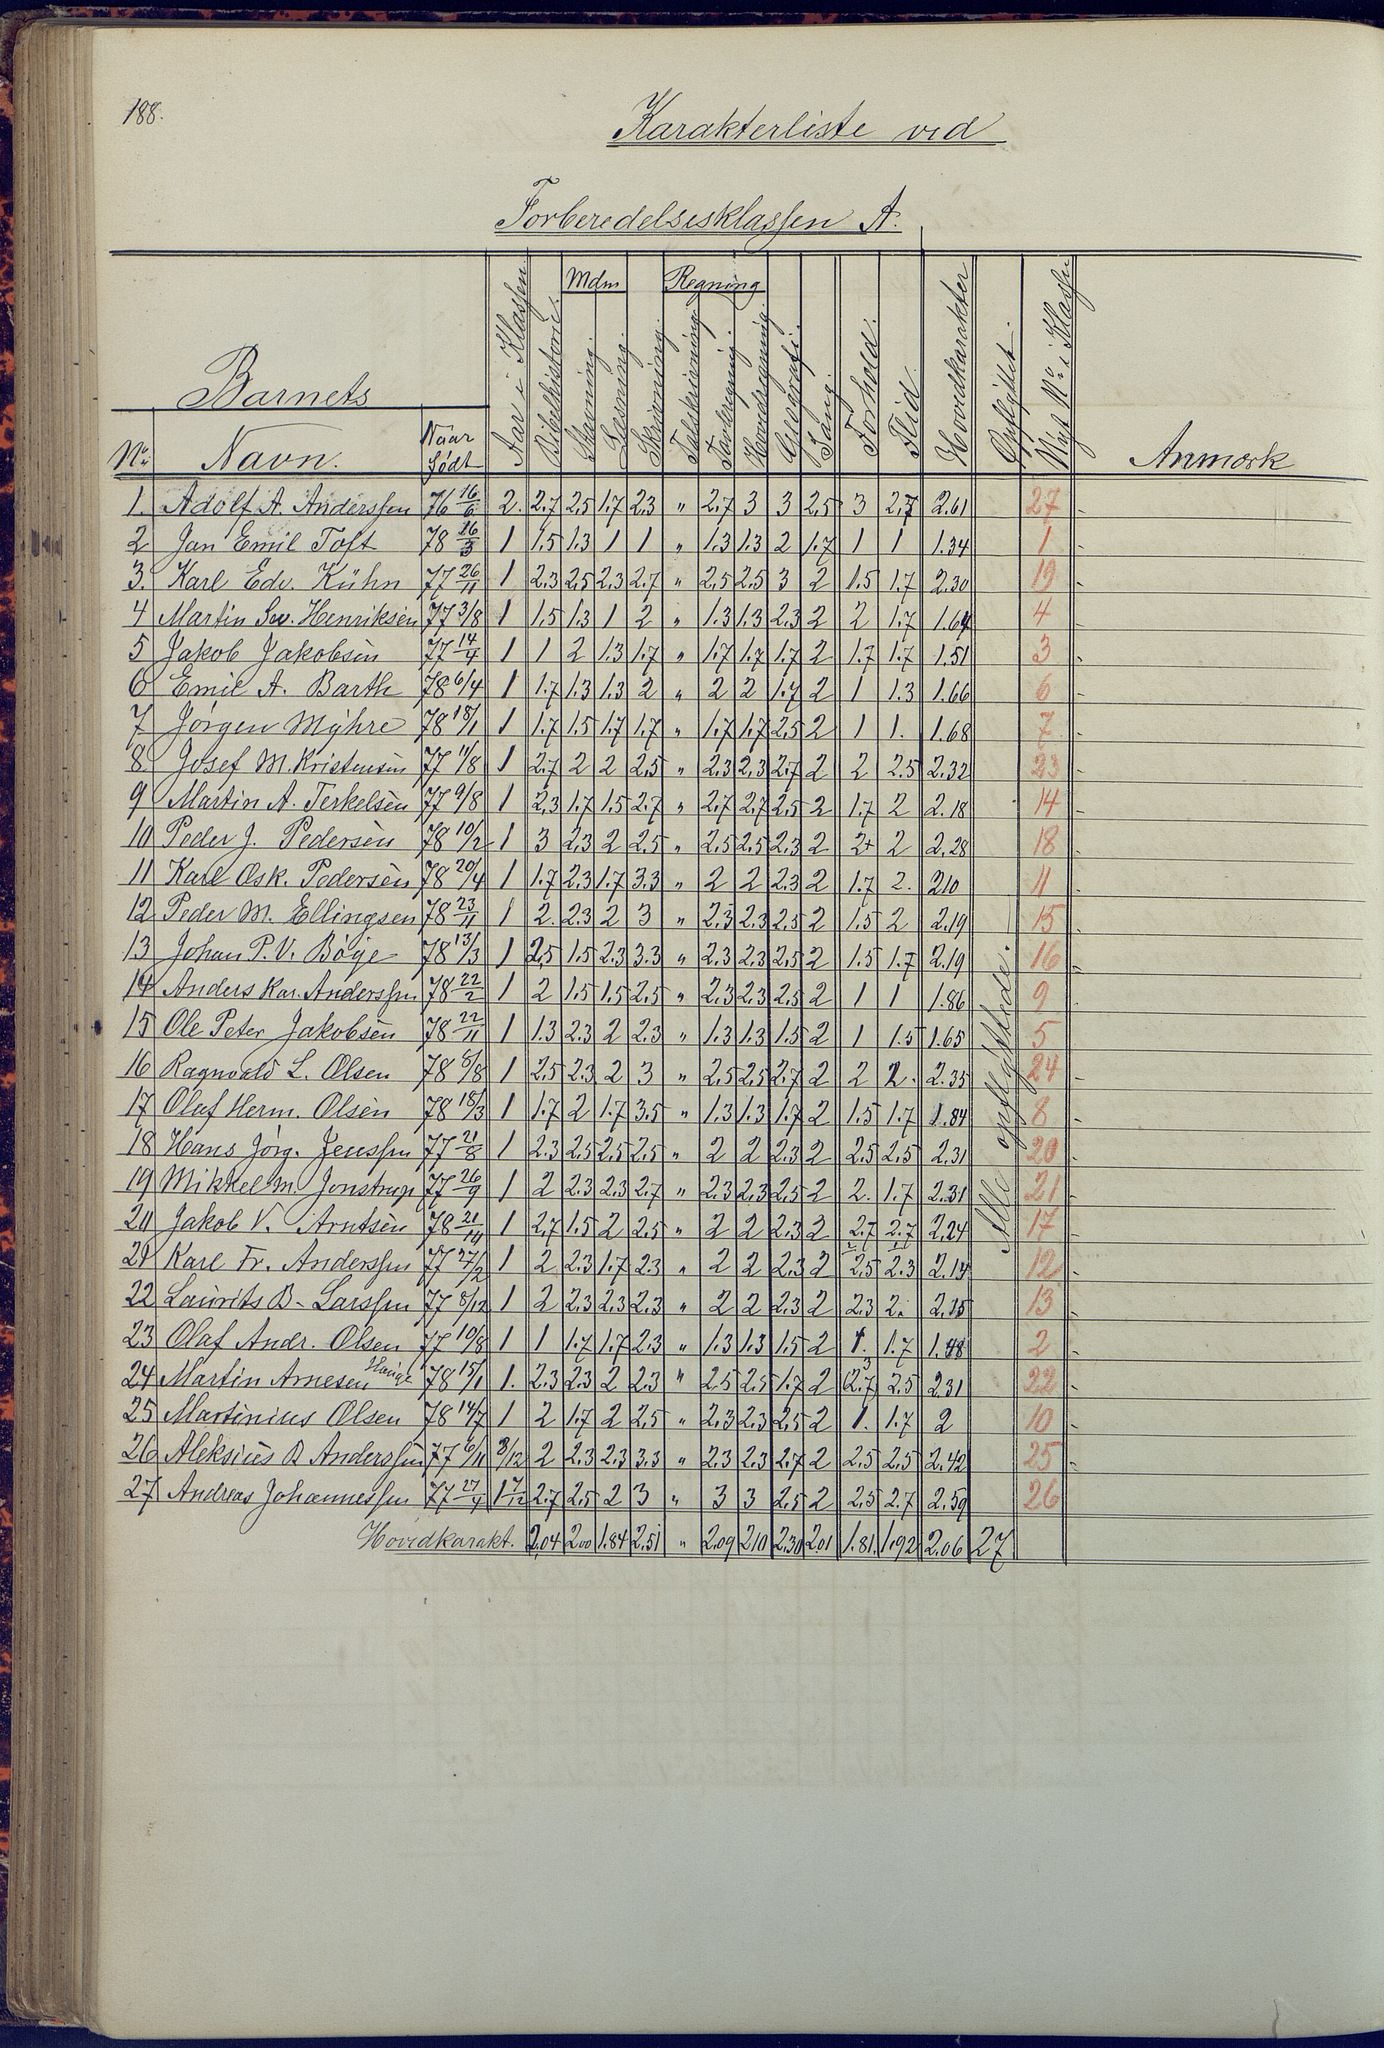 188.
Karakterliste ved
Forberedelsesklassen A.
Barnets
Mdm
Regning
No Navn. Naar Født Aar i Klassen. Bibelhistorie. Stavning. Læsning. Skrivning. Talskrivning. Tavleregning. Hovedregning. Geografi. Sang. Forhold. Flid. Hovedkarakter Opflyttet. Nyt No i Klassen Anmærk
1. Adolf A. Anderssen 76 16/6 2. 2.7 2.5 1.7 2.3 " 2.7 3 3 2.5 3 2.7 2.61 27
2 Jan Emil Toft 78 16/3 1 1.5 1.3 1 1 " 1.3 1.3 2 1.7 1 1 1.34 1
3. Karl Edv. Kühn 77 26/11 1 2.3 2.5 2.3 2.7 " 2.5 2.5 3 2 1.5 1.7 2.30 19
4 Martin Sev. Henriksen 77 3/8 1 1.5 1.3 1 2 " 1.3 1.3 2.3 2 2 1.7 1.64 4
5 Jakob Jakobsen 77 14/4 1 1 2 1.3 1.7 " 1.7 1.7 1.7 2 1.7 1.7 1.51 3
6 Emil A. Barth 78 6/4 1 1.7 1.3 1.3 2 " 2 2 1.7 2 1 1.3 1.66 6
7 Jørgen Myhre 78 18/1 1 1.7 1.5 1.7 1.7 " 1.7 1.7 2.5 2 1 1. 1.68 7
8 Josef M. Kristensen 77 11/8 1 2.7 2 2 2.5 " 2.3 2.3 2.7 2 2 2.5 2.32 23
9 Martin A. Terkelsen 77 9/8 1 2.3 1.7 1.5 2.7 " 2.7 2.7 2.5 2 1.7 2 2.18 14
10 Peder J. Pedersen 78 10/2 1 3 2.3 2 2.5 " 2.5 2.5 2.3 2 2+ 2 2.28 18
11 Karl Osk. Pedersen 78 20/4 1 1.7 2.3 1.7 3.3 " 2 2 2.3 2 1.7 2. 2.10 11
12 Peder M. Ellingsen 78 23/11 1 2. 2.3 2 3 " 2.3 2.3 2.5 2 1.5 2 2.19 15
13 Johan P. V. Bøge 78 13/3 1 2.5 1.5 2.3 3.3 " 2.3 2.3 2.5 2 1.5 1.7 2.19 16
14 Anders Kar. Anderssen 78 22/2 1 2 1.5 1.5 2.5 " 2.3 2.3 2.5 2 1 1 1.86 9
15 Ole Peter Jakobsen 78 22/11 1 1.3 2.3 2 2.3 " 1.3 1.3 1.5 2 1 1.5 1.65 5
16 Ragnvald L. Olsen 78 8/8 1 2.5 2.3 2 3 " 2.5 2.5 2.7 2 2 2. 2.35 24
17 Olaf Herm. Olsen 78 18/3 1 1.7 2 1.7 3.5 " 1.3 1.3 1.7 2 1.5 1.7 1.84 8
18 Hans Jørg. Jenssen 77 21/8 1 2.3 2.5 2.5 2.5 " 2 2 2.3 2 2.5 2.5 2.31 20
19 Mikkel M. Jonstrup 77 26/9 1 2 2.3 2.3 2.7 " 2.3 2.3 2.5 2 2. 1.7 2.31 21
20 Jakob V. Arntsen 78 21/ 1 2.7 1.5 2 2.5 " 2 2 2.3 2 2.7 2.7 2.24 17
21 Karl Fr. Anderssen 77 27/2 1 2 2.3 1.7 2.3 " 2 2 2.3 2 2.5 2.3 2.14 12
22 Laurits B. Larssen 77 8/12 1 2 2.3 2.3 2.3 " 2 2 2.3 2 2.3 2. 2.15 13
23 Olaf Andr. Olsen 77 10/8 1 1 1.7 1.7 2.3 " 1.3 1.3 1.5 2 1. 1.7 1.48 2
24 Martin Arnesen Hauge 78 15/1 1. 2.3 2.3 2 2.3 " 2.5 2.5 1.7 2 2.7 3 2.5 2.31 22
25 Martinius Olsen 78 14/7 1 2 1.7 2 2.5 " 2.3 2.3 2.5 2 1. 1.7 2 10
26 Aleksius B Anderssen 77 6/11 3/12 2 2.3 2.3 3.3 " 2.3 2.3 2.7 2 2.5 2.5 2.42 25
27 Andreas Johannessen 77 27/4 1 7/12 2.7 2.5 2 3 " 3 3 2.5 2 2.5 2.7 2.59 26
Alle opflyttede.
Hovedkarakt. 2.04 2.00 1.84 2.51 " 2.09 2.10 2.30 2.01 1.81. 1.92 2.06 27